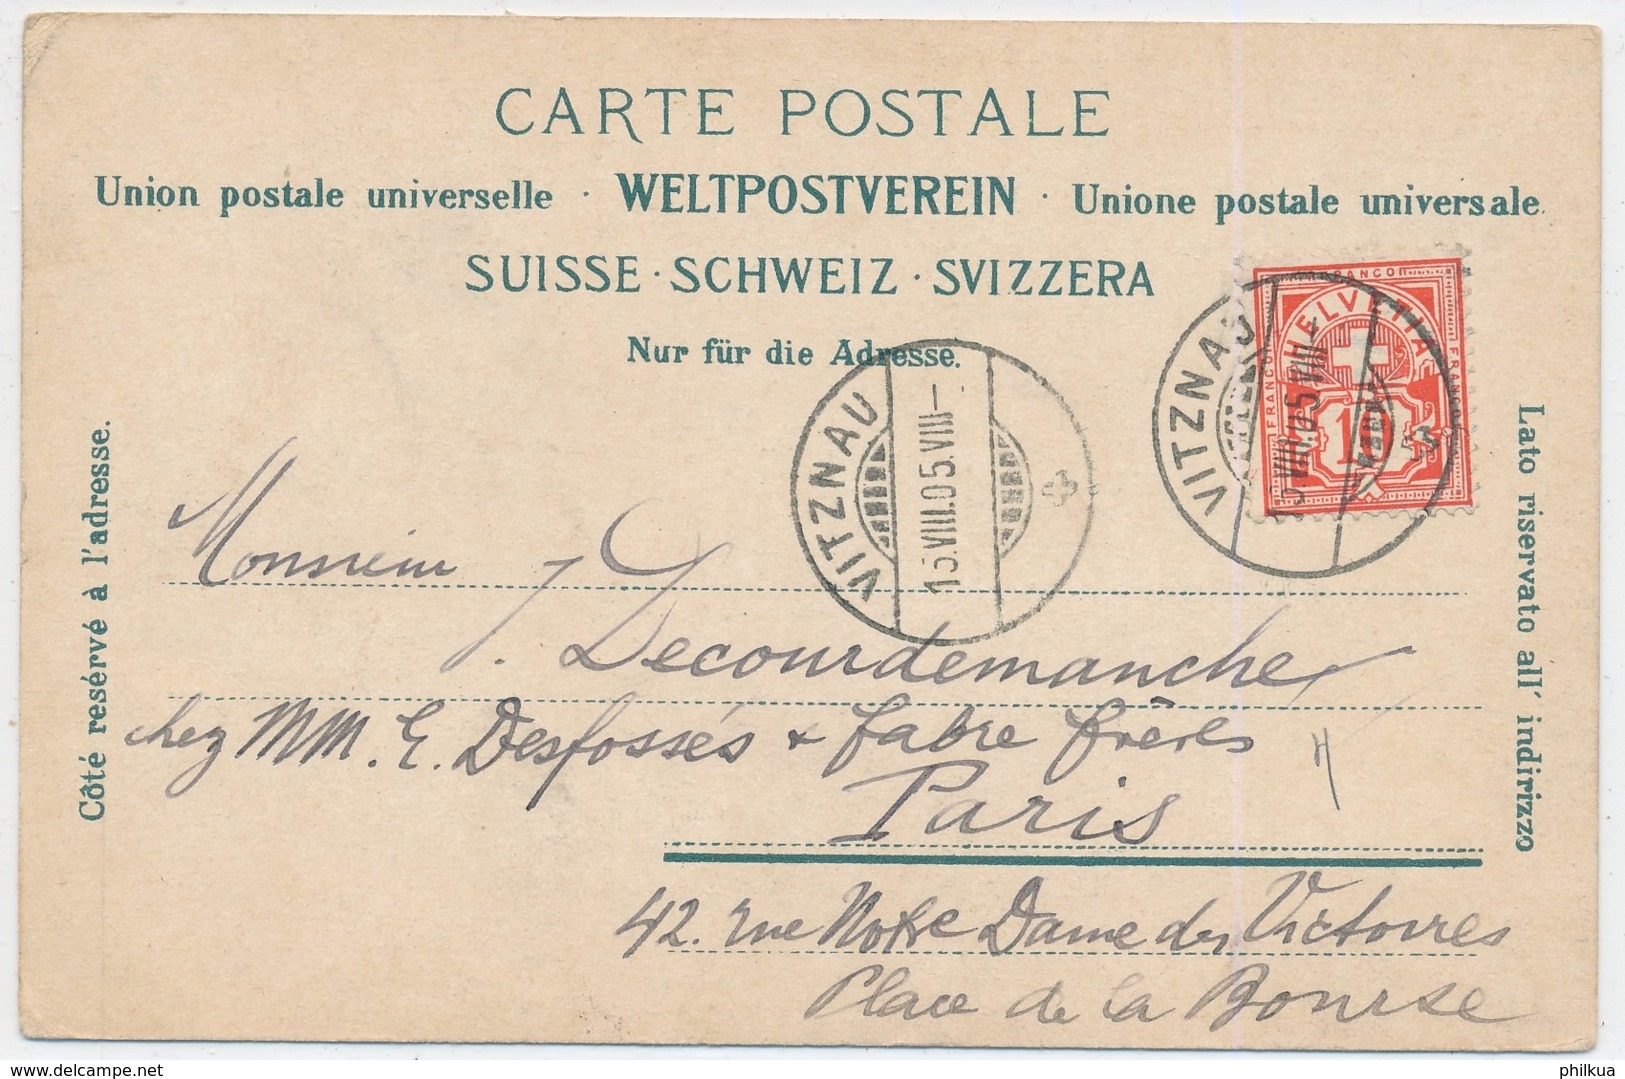 CARTE POSTALE
Union postale universelle · WELTPOSTVEREIN · Unione postale universale.
SUISSE · SCHWEIZ · SVIZZERA
Nur für die Adresse.
Côté resérvé à l'adresse.
Lato riservato all' indirizzo
FRANCO
HELVETIA
FRANCO
FRANCO
10
VITZNAU
15.VIII.05.VIII–
VITZNAU
15.VIII.05.VIII–
Monsieur J.
Decourdemanche
chez MM. E. Desfossés & Fabre frères
Paris
42. rue Notre Dame des Victoires
Place de la Bourse
www.delcampe.net
philkua